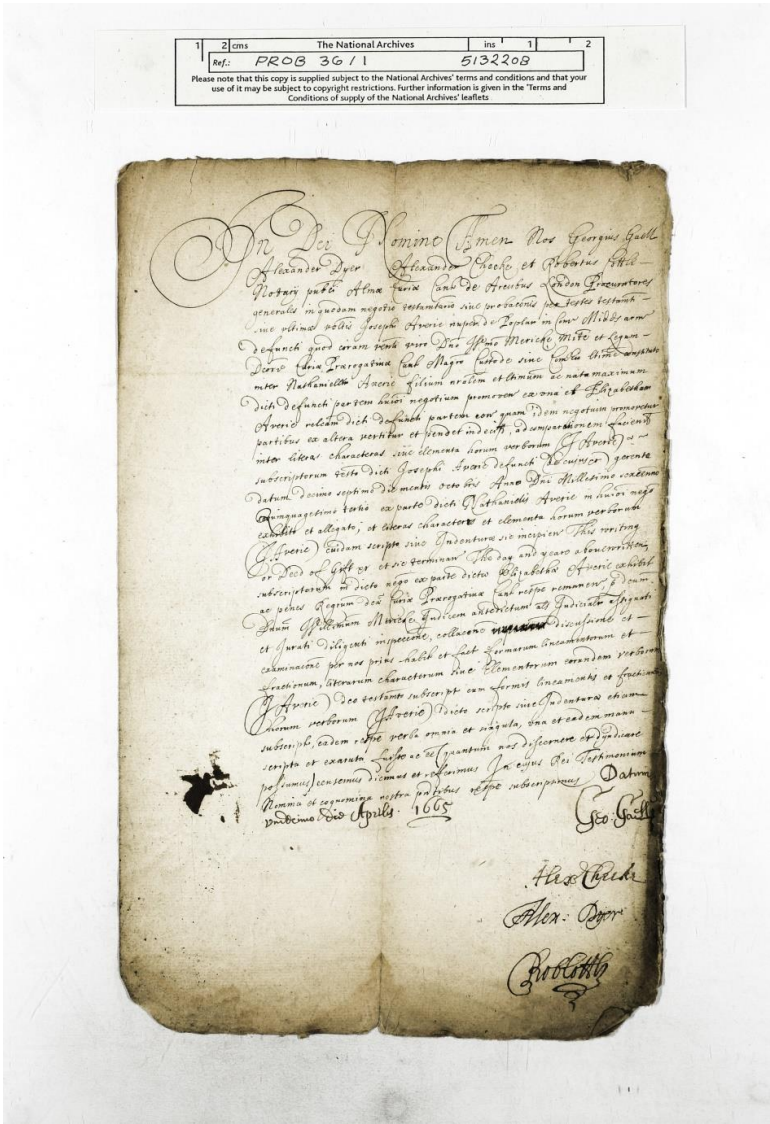 1 2 cms The National Archives ins 1 2
Ref.: PROB 36/1 5132208
Please note that this copy is supplied subject to the National Archives' terms and conditions and that your
use of it may be subject to copyright restrictions. Further information is given in the 'Terms and
Conditions of supply of the National Archives' leaflets
In Dei Nomine Amen Nos Georgius Gaell
Alexander Dyer Alexander Cheeke et Robertus
Notarij publici Almæ Curiæ Cant de Arcubus London Procuratores
generales in quodam negotio testamentario sive probaconis per testes testamti
sive ultimæ voltis Josephi Averie nuper de Poplar in Com Midds
defuncti quod coram venli viro Dno Willmo Mericke Milite et Legum
Dcore Curiæ Prærogativæ Cant Magro Custode sive Comrio ltime constituto
inter Nathanielem Averie filium nralem et ltimum ac natu maximum
dicti defuncti partem huioi negotium promoven ex una et Elizabetham
Averie relcam dicti defuncti partem con quam idem negotium promovetur
partibus ex altera vertitur et pendet indecis, ad comparationem faciend
inter literas characteras sive elementa horum verborum (J Averie)
subscriptorum testo dicti Josephi Averie defuncti gerente
datum decimo septimo die mensis Octobris Anno Dni Millesimo sexcenmo
Quinquagesimo tertio ex parte dicti Nathanielis Averie in huioi nego
exhibito et allegato; et literas characteres et elementa horum verborum
(J Averie) cuidam scripto sive Indenturæ sic incipien This writing
or Deed of Gift &r et sic terminan The day and yeare above written
subscriptorum in dicto nego ex parte dictæ Elizabethæ Averie exhibit
ac penes Regrum dcæ Curiæ Prærogativæ Cant respve remanen &
Dnum Willimum Mericke Judicem antedictum als Judicialr assignati
et Jurati diligenti inspeccone, collacone discussione et
examinacone per nos prius habit et fact formarum lineamentorum et
fractionum, literarum characterum sive Elementorum eorundem verborum
(J Averie) dco testamto subscript cum formis lineamentis et fractionibus
horum verborum (J Averie) dicto scripto sive Indenturæ etiam
subscript, eadem respve verba omnia et singula, una et eadem manu
scripta et exarata fuisse ac esse (quantum nos discernere et dijudicare
possumus) censemus dicimus et referimus In cujus Rei Testimonium
Nomina et cognomina nostra prntibus respve subscripsimus Datum
undecimo die Aprilis 1665
Geo: Gaell
Alex Cheeke
Alex: Dyer